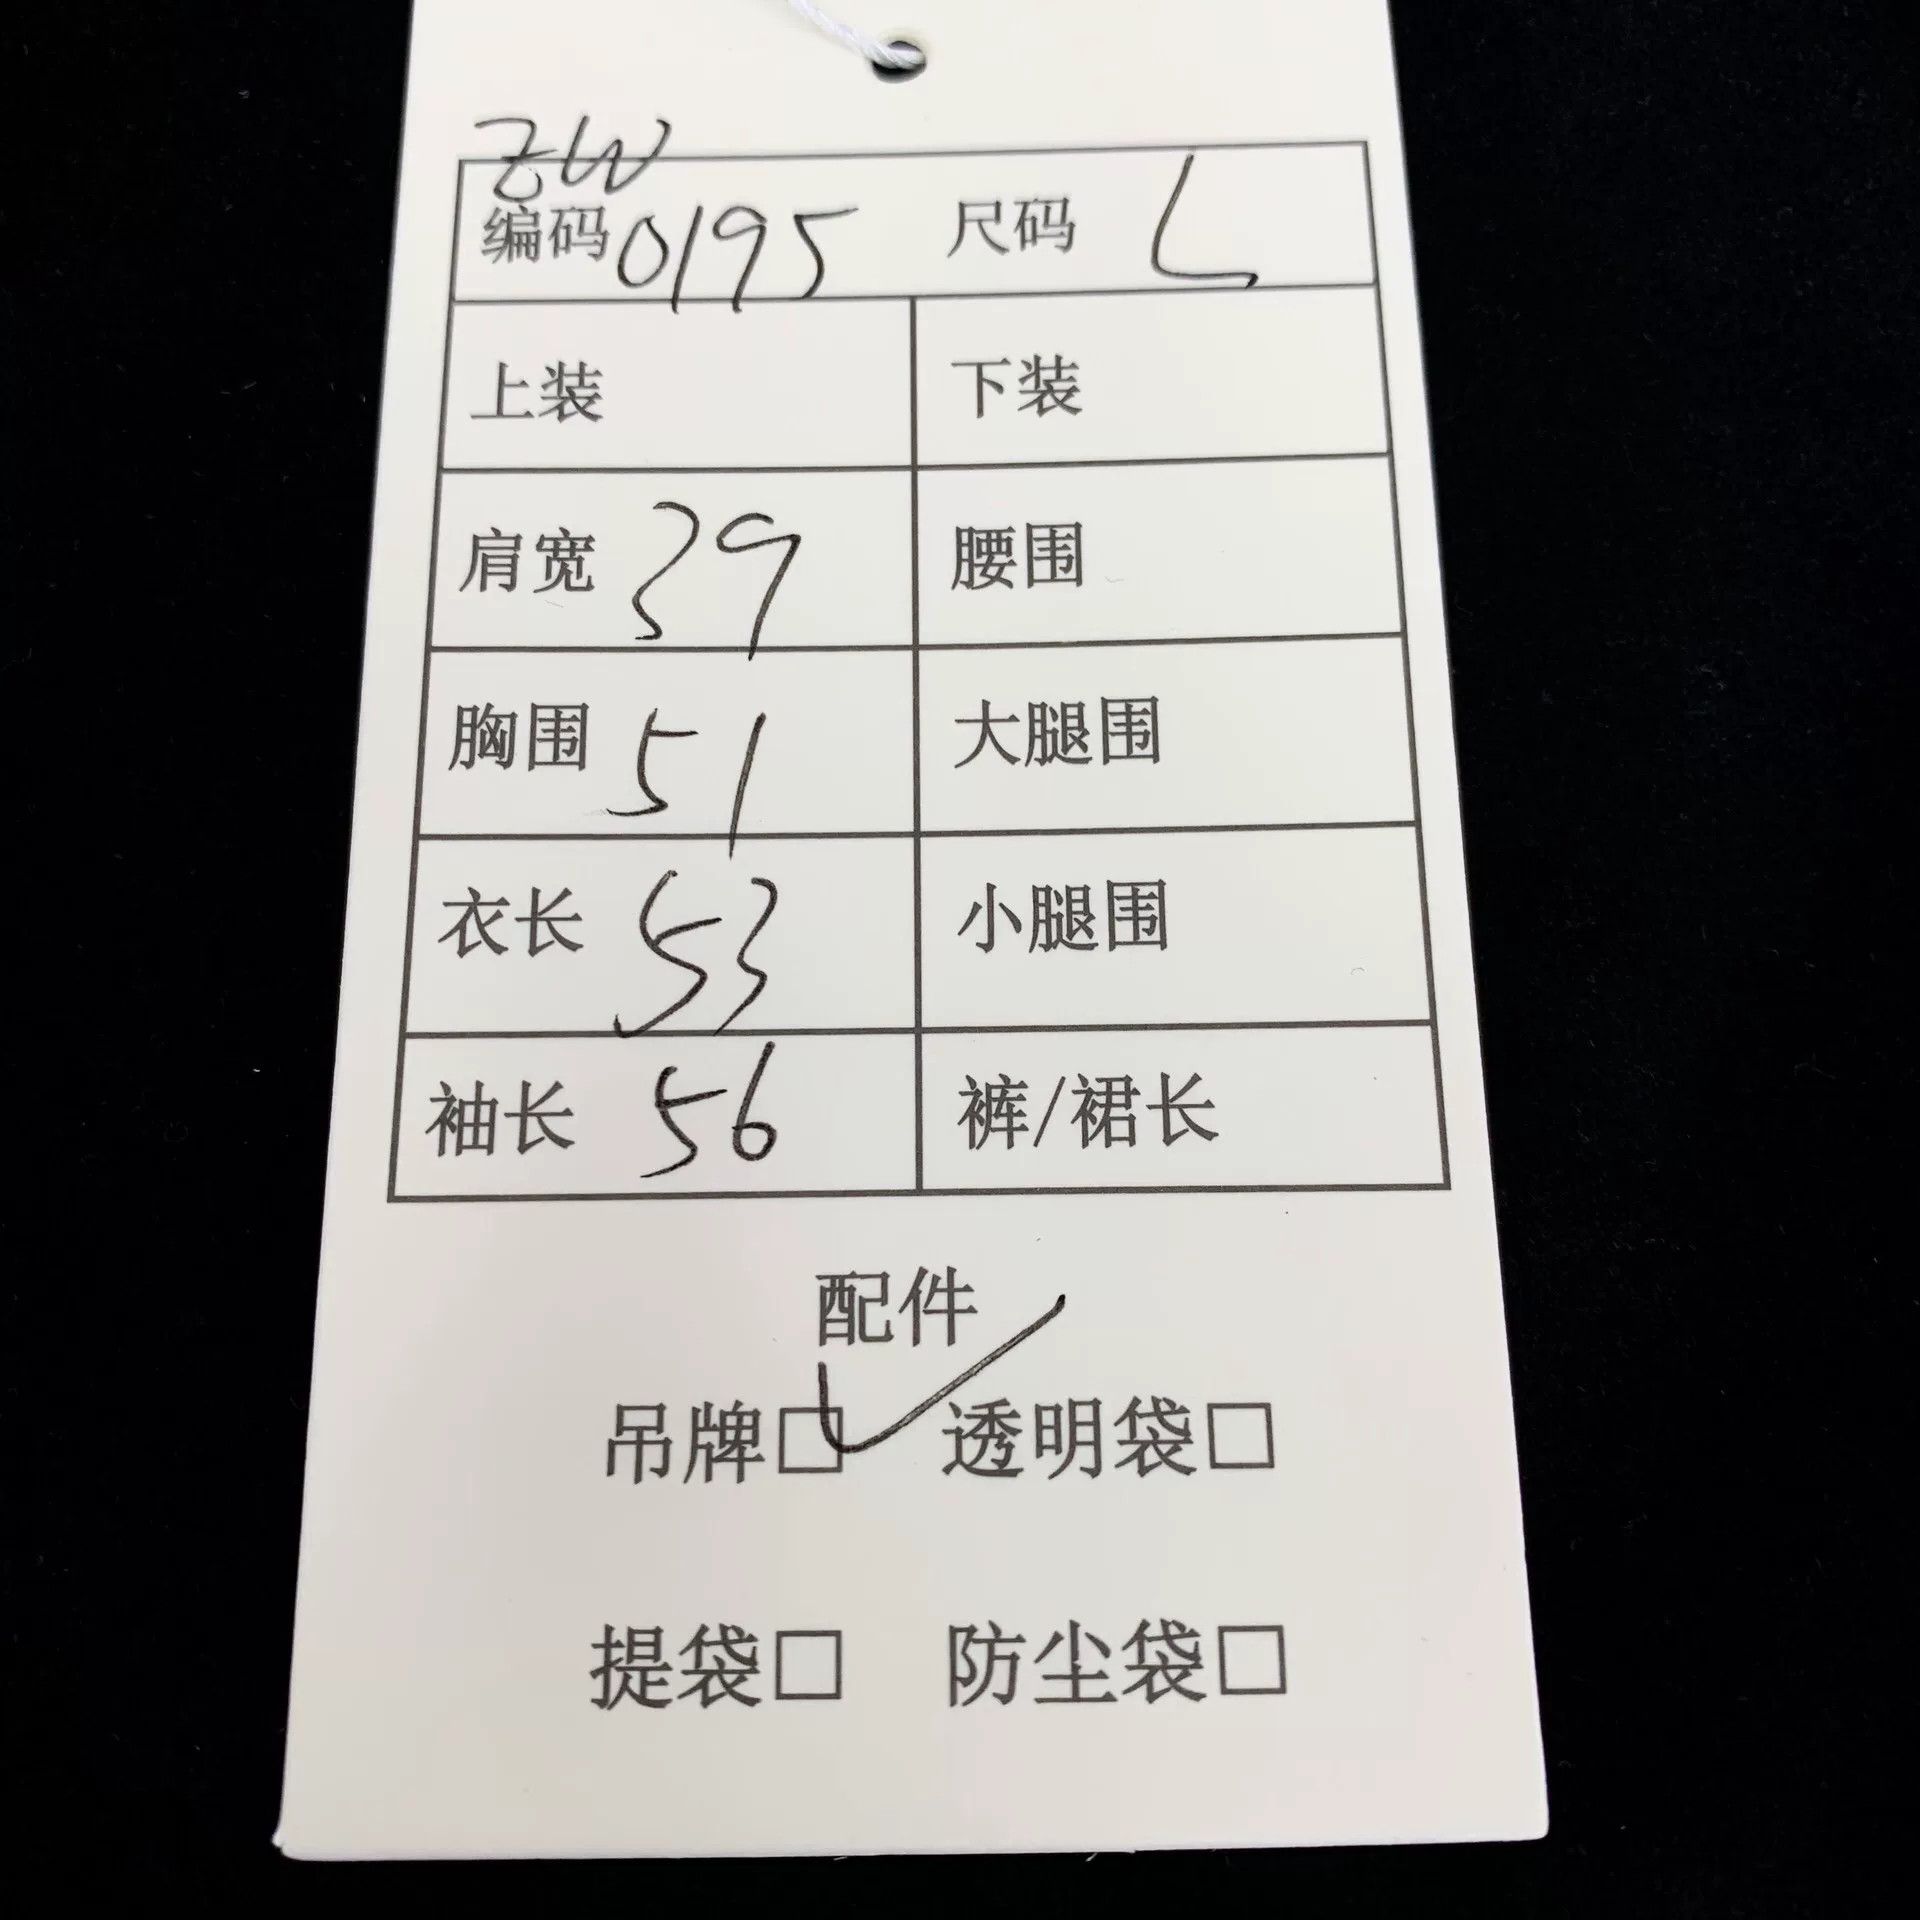 ZW
编码 0195 尺码 L
上装 下装
肩宽 39 腰围
胸围 51 大腿围
衣长 53 小腿围
袖长 56 裤/裙长
配件
吊牌□✓ 透明袋□
提袋□ 防尘袋□